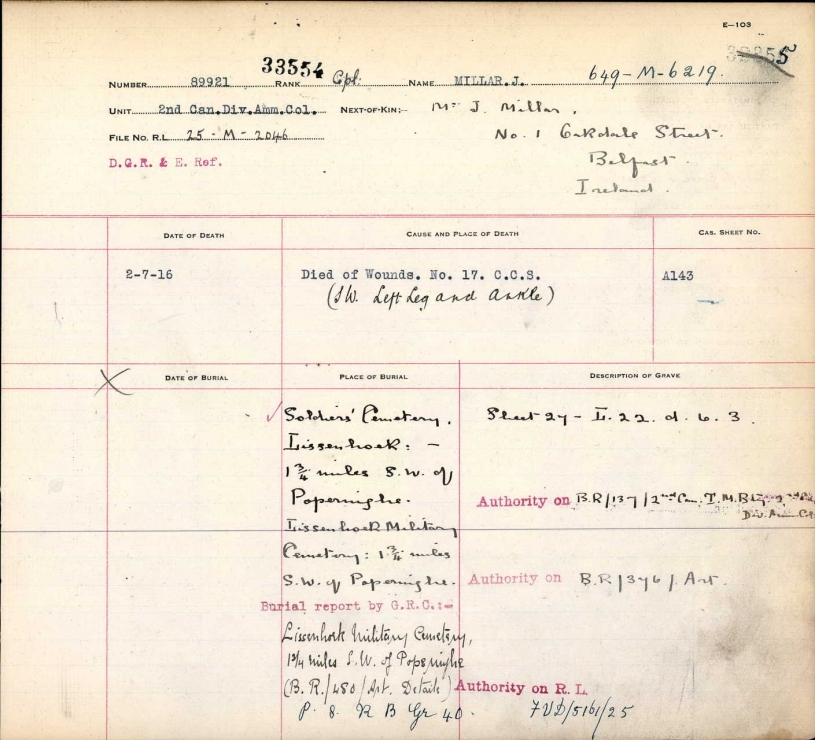 E—103
33554
NUMBER 89921 RANK Cpl. NAME MILLAR.J. 649-M-6219.
UNIT 2nd Can.Div.Amm.Col. NEXT-OF-KIN:- Mr J. Millar,
FILE NO. R.L. 25-M-2046 No. 1 Oakdale Street.
D.G.R. & E. Ref. Belfast.
Ireland.
DATE OF DEATH CAUSE AND PLACE OF DEATH CAS. SHEET NO.
2-7-16 Died of Wounds. No. 17. C.C.S. A143
(SW. Left Leg and Ankle)
DATE OF BURIAL PLACE OF BURIAL DESCRIPTION OF GRAVE
Soldiers' Cemetery, Sheet 27 - L. 22. d. 6. 3.
Lissenhoek: -
1 3/4 miles S.W. of
Poperinghe. Authority on B.R/137/2nd Can. T.M. 2nd
Div. Amm. Col
Lissenhoek Military
Cemetery: 1 3/4 miles
S.W. of Poperinghe. Authority on B.R/376/. Art.
Burial report by G.R.C.:-
Lissenhoek Military Cemetery,
1 3/4 miles S.W. of Poperinghe
(B.R./480/Art. Details) Authority on R.L.
P. 8. R B Gr 40. 7VD/5161/25